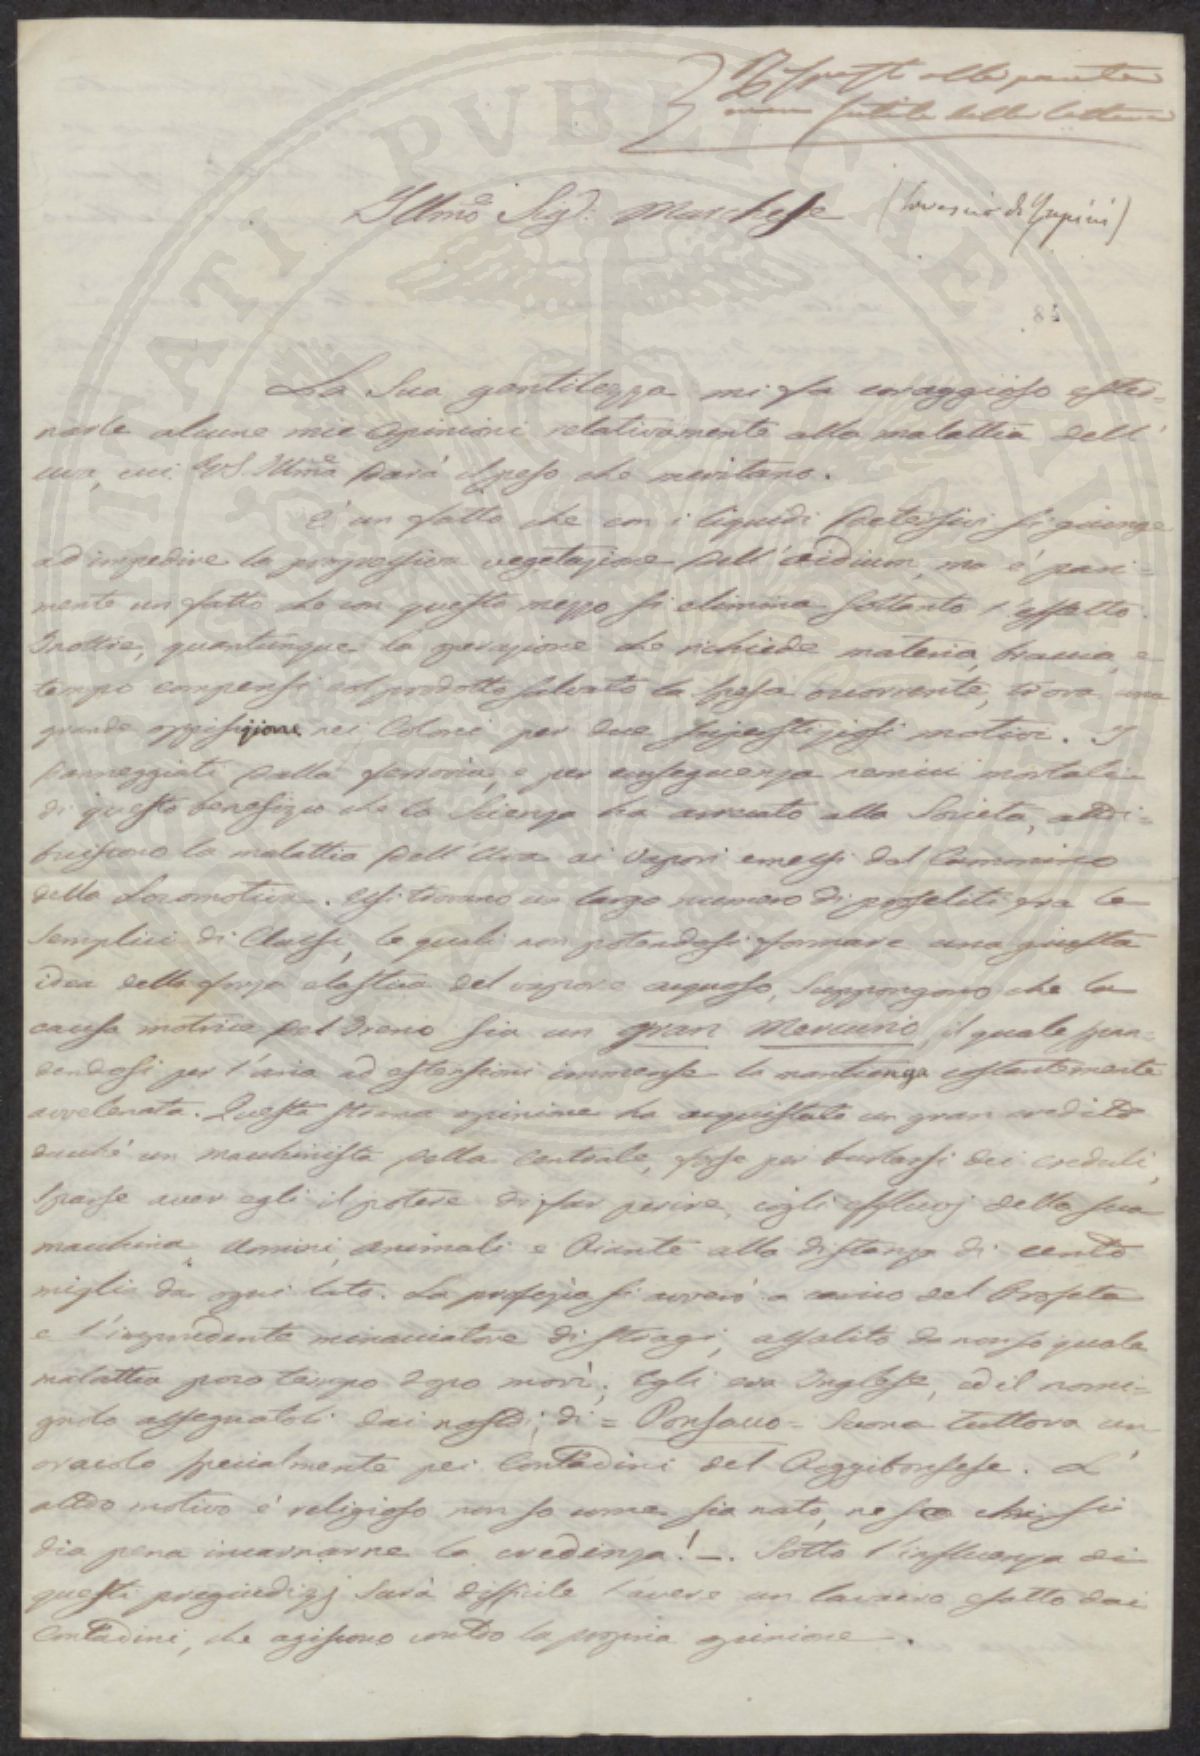 Risposto alla parte
non futile della lettera
Illmo Sigr. Marchese (Lorenzo di
48
La Sua gentilezza mi fa coraggioso ester=
narle alcune mie opinioni relativamente alla malattia dell'
uva, cui VS. Illma darà il peso che meritano.
È un fatto che con i liquidi si giunge
ad impedire la progressiva vegetazione dell'oidium, ma è pari=
mente un fatto che con questo mezzo si elimina soltanto l'effetto.
Inoltre, quantunque la operazione che richiede materia, braccia, e
tempo compensi col prodotto salvato la spesa occorrente, trova una
grande opposizione nei Coloni per due superstiziosi motivi. I
danneggiati dalla ferrovia, e per conseguenza nemici mortali
di questo benefizio che la Scienza ha arrecato alla Società, attri=
buiscono la malattia dell'Uva ai vapori emessi dal Cammino
della Locomotiva. Essi trovano un largo numero di proseliti fra le
semplici di Classi, le quali non potendosi formare una giusta
idea della forza elastica del vapore acquoso, suppongono che la
causa motrice del Treno sia un gran Mercurio, il quale span=
dendosi per l'aria ad estensioni immense la mantenga costantemente
avvelenata. Questa strana opinione ha acquistato un gran credito
dacchè un macchinista della Centrale, forse per burlarsi dei creduli,
sparse aver egli il potere di far perire, cogli effluvj della sua
macchina Uomini, animali e Piante alla distanza di cento
miglia da ogni lato. La profezia si avverò a carico del Profeta
e l'imprudente minacciatore di stragi, assalito da non so quale
malattia poco tempo dopo morì; Egli era Inglese, ed il nomi=
gnolo assegnatoli dai nostri, di = Ponsacco = suona tuttora un
oracolo specialmente pei Contadini del Poggibonsese. L'
altro motivo è religioso non so come sia nato, ne so chi si
dia pena incarnarne la credenza! —. Sotto l'influenza di
questi pregiudizj sarà difficile l'avere un lavoro esatto dai
Contadini, che agiscono contro la propria opinione.